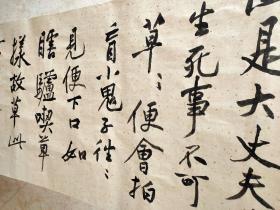 是大丈夫
生死事不可
草々便會拍
盲小鬼子往々
見便下口如
瞎驢喫草
樣故草此